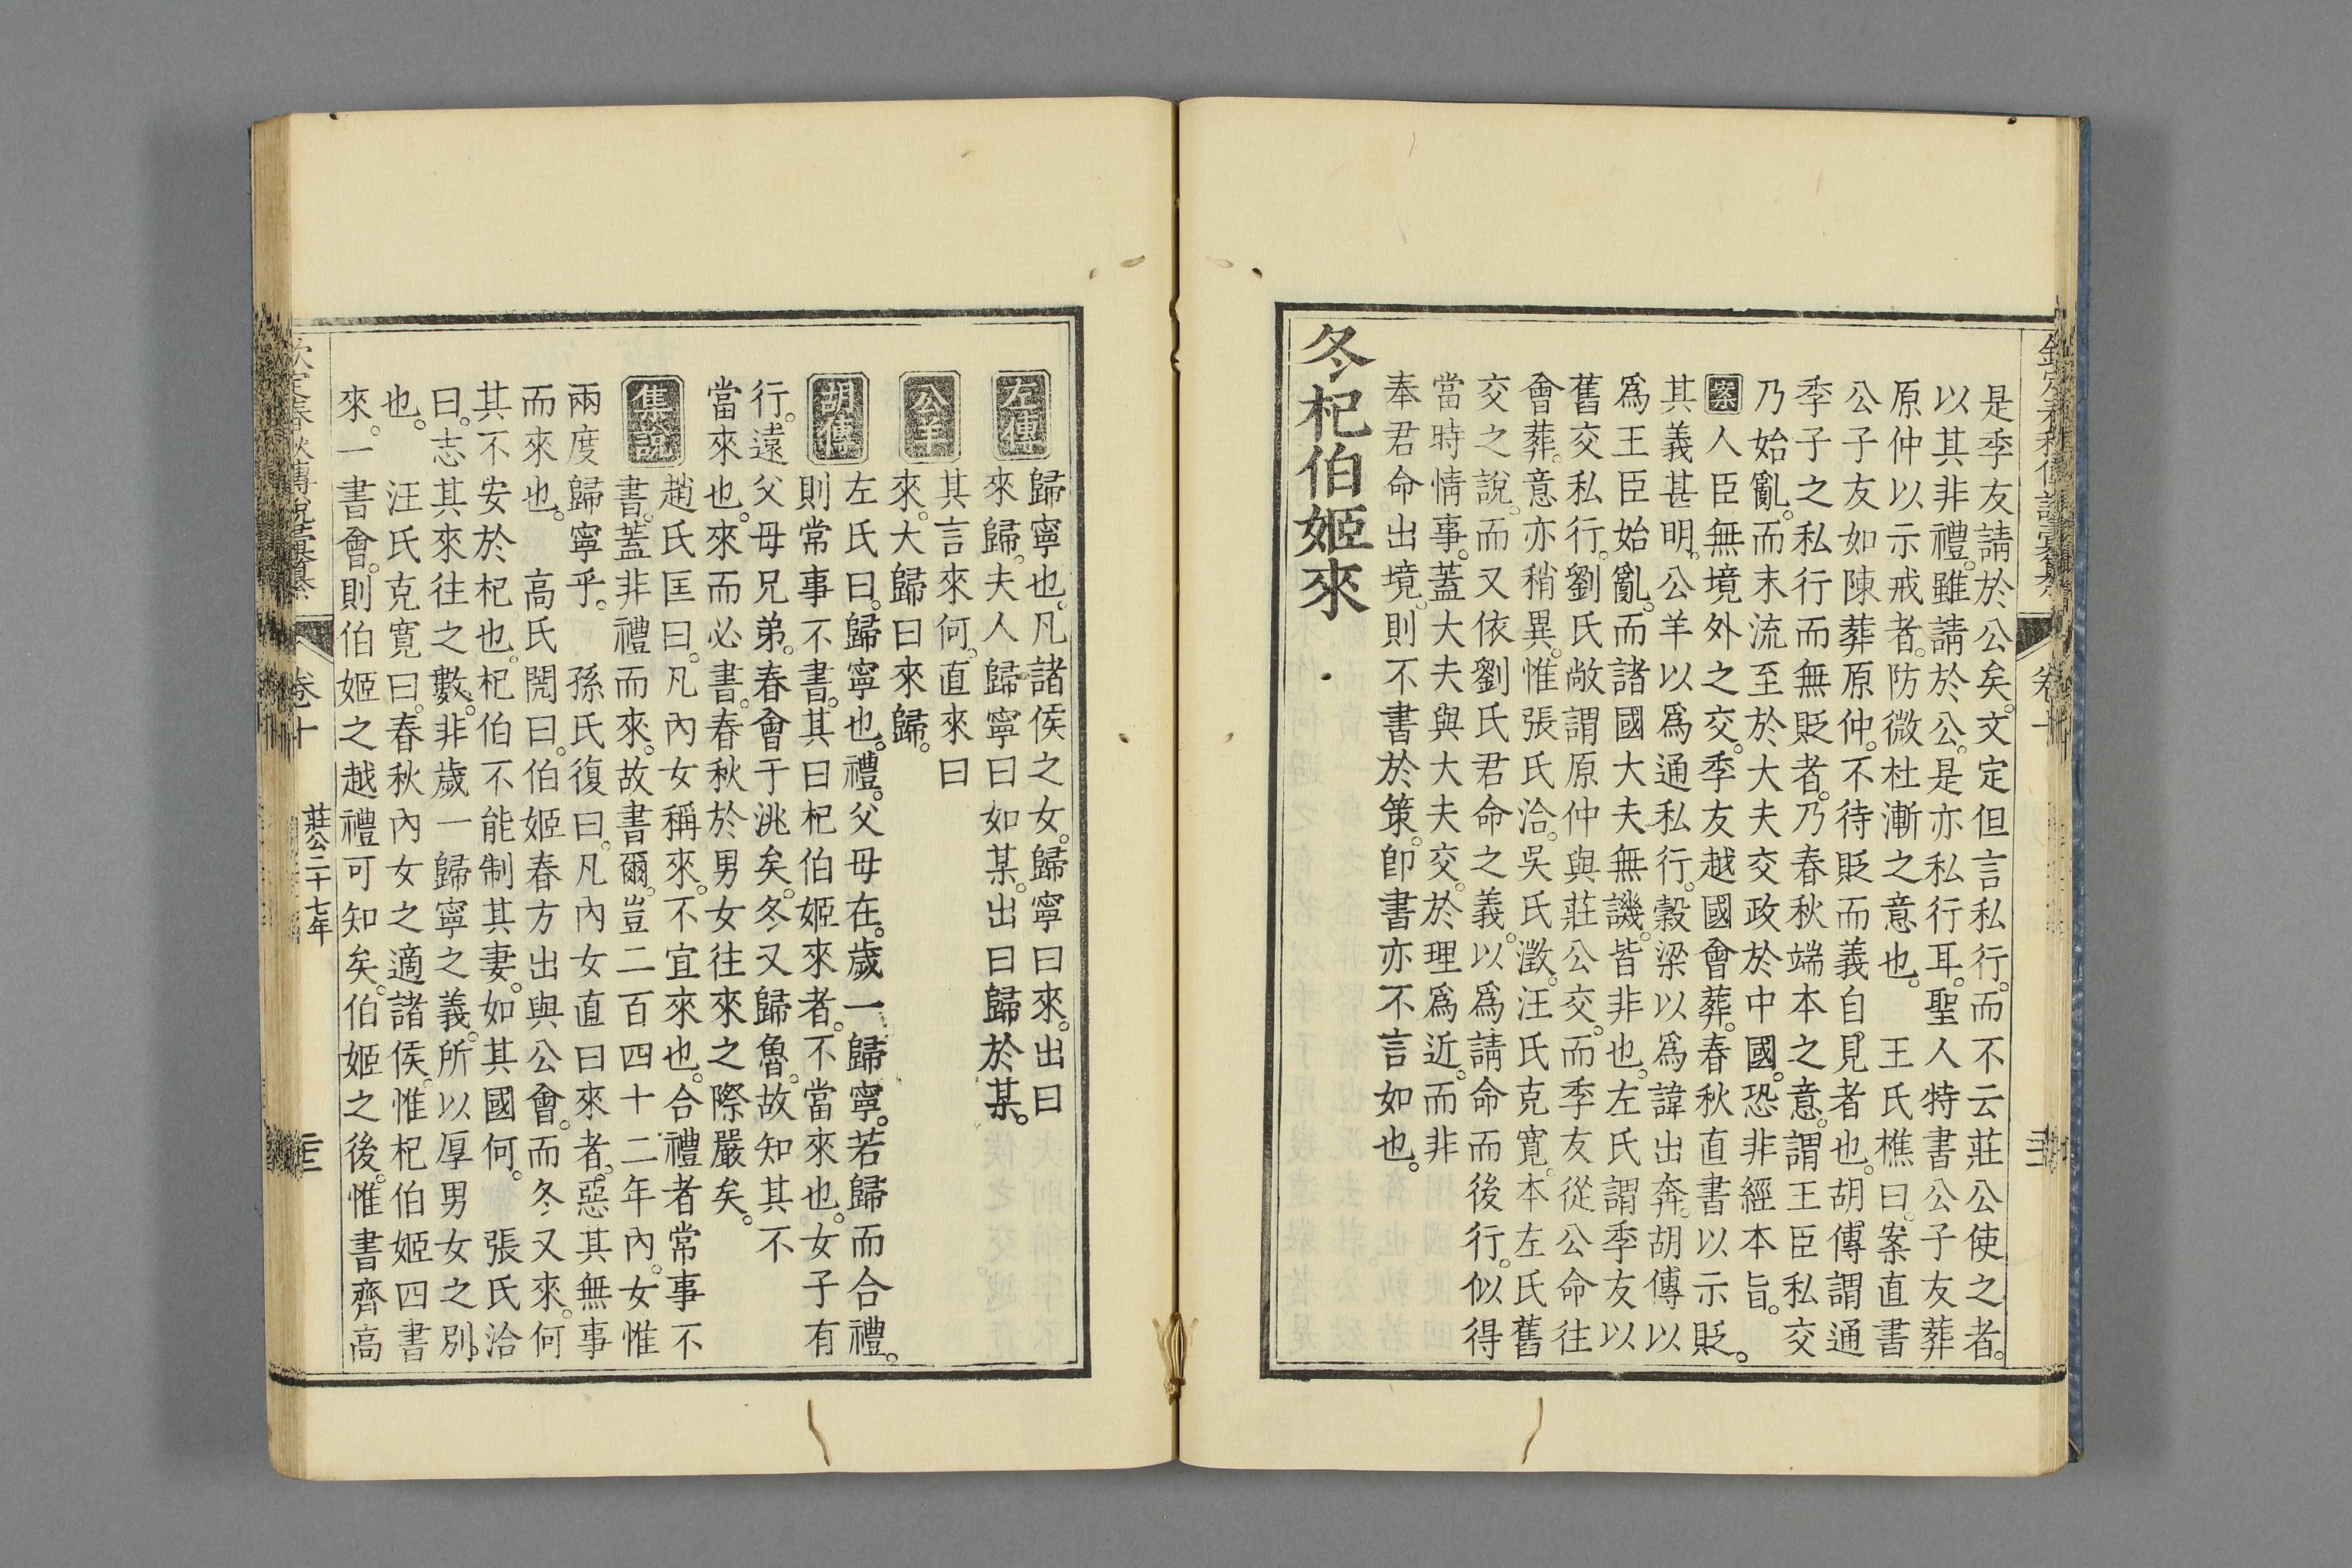 是季友請於公矣。文定但言私行。而不云莊公使之者。
以其非禮。雖請於公。是亦私行耳。聖人特書公子友葬
原仲以示戒者。防微杜漸之意也。 王氏樵曰。案直書
公子友如陳葬原仲。不待貶而義自見者也。胡傳謂通
季子之私行而無貶者。乃春秋端本之意。謂王臣私交
乃始亂。而末流至於大夫交政於中國。恐非經本旨。
案人臣無境外之交。季友越國會葬。春秋直書以示貶。
其義甚明。公羊以爲通私行。穀梁以爲諱出奔。胡傳以
爲王臣始亂。而諸國大夫無譏。皆非也。左氏謂季友以
舊交私行。劉氏敞謂原仲與莊公交。而季友從公命往
會葬。意亦稍異。惟張氏洽。吳氏澂。汪氏克寬。本左氏舊
交之說。而又依劉氏君命之義。以爲請命而後行。似得
當時情事。蓋大夫與大夫交。於理爲近。而非
奉君命出境。則不書於策。卽書亦不言如也。
冬杞伯姬來
左傳 歸寧也。凡諸侯之女。歸寧曰來。出曰
來歸。夫人歸寧曰如某。出曰歸於某。
公羊 其言來何。直來曰
來。大歸曰來歸。
胡傳 左氏曰。歸寧也。禮。父母在。歲一歸寧。若歸而合禮。
則常事不書。其曰杞伯姬來者。不當來也。女子有
行。遠父母兄弟。春會于洮矣。冬又歸魯。故知其不
當來也。來而必書。春秋於男女往來之際嚴矣。
集說 趙氏匡曰。凡內女稱來。不宜來也。合禮者常事不
書。蓋非禮而來。故書爾。豈二百四十二年內。女惟
兩度歸寧乎。 孫氏復曰。凡內女直曰來者。惡其無事
而來也。 高氏閌曰。伯姬春方出與公會。而冬又來。何
其不安於杞也。杞伯不能制其妻。如其國何。 張氏洽
曰。志其來往之數。非歲一歸寧之義。所以厚男女之別
也。 汪氏克寬曰。春秋內女之適諸侯。惟杞伯姬四書
來。一書會。則伯姬之越禮可知矣。伯姬之後。惟書齊高
欽定春秋傳說彙纂 卷十 莊公二十七年